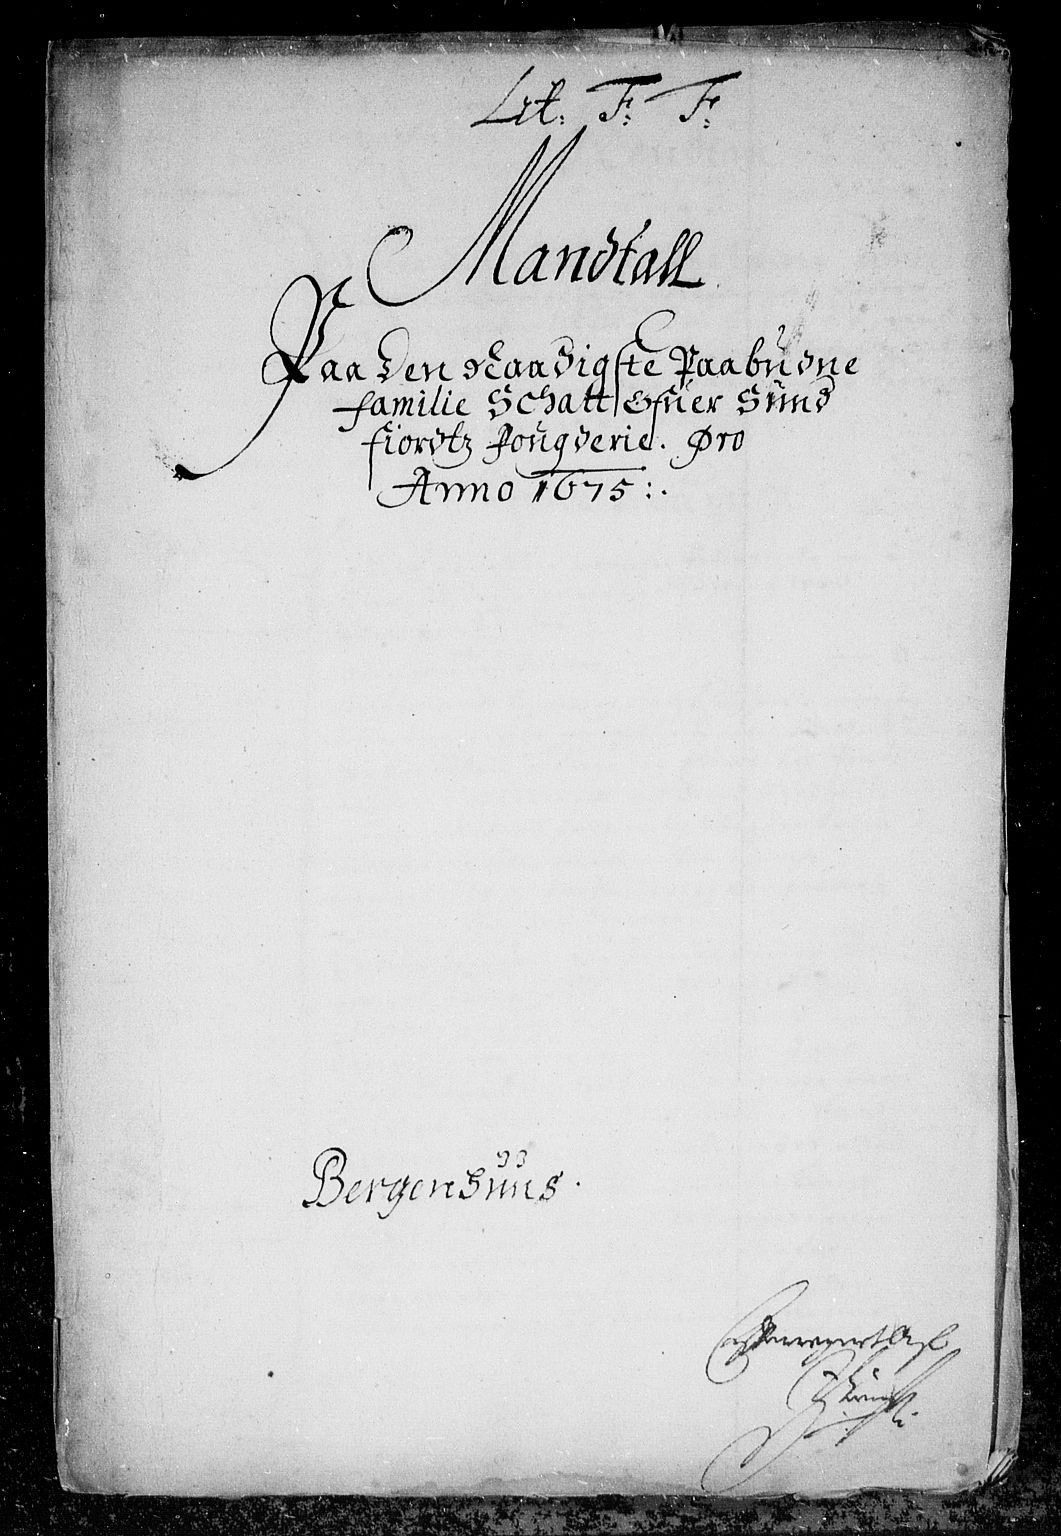 Lit: F: F:
Mandtall
Paa Den Naadigste Paabudne
familie Schatt Ofuer Sünd
fiordtz fougderie. Pro
Anno 1675:.
Bergenhüüs.